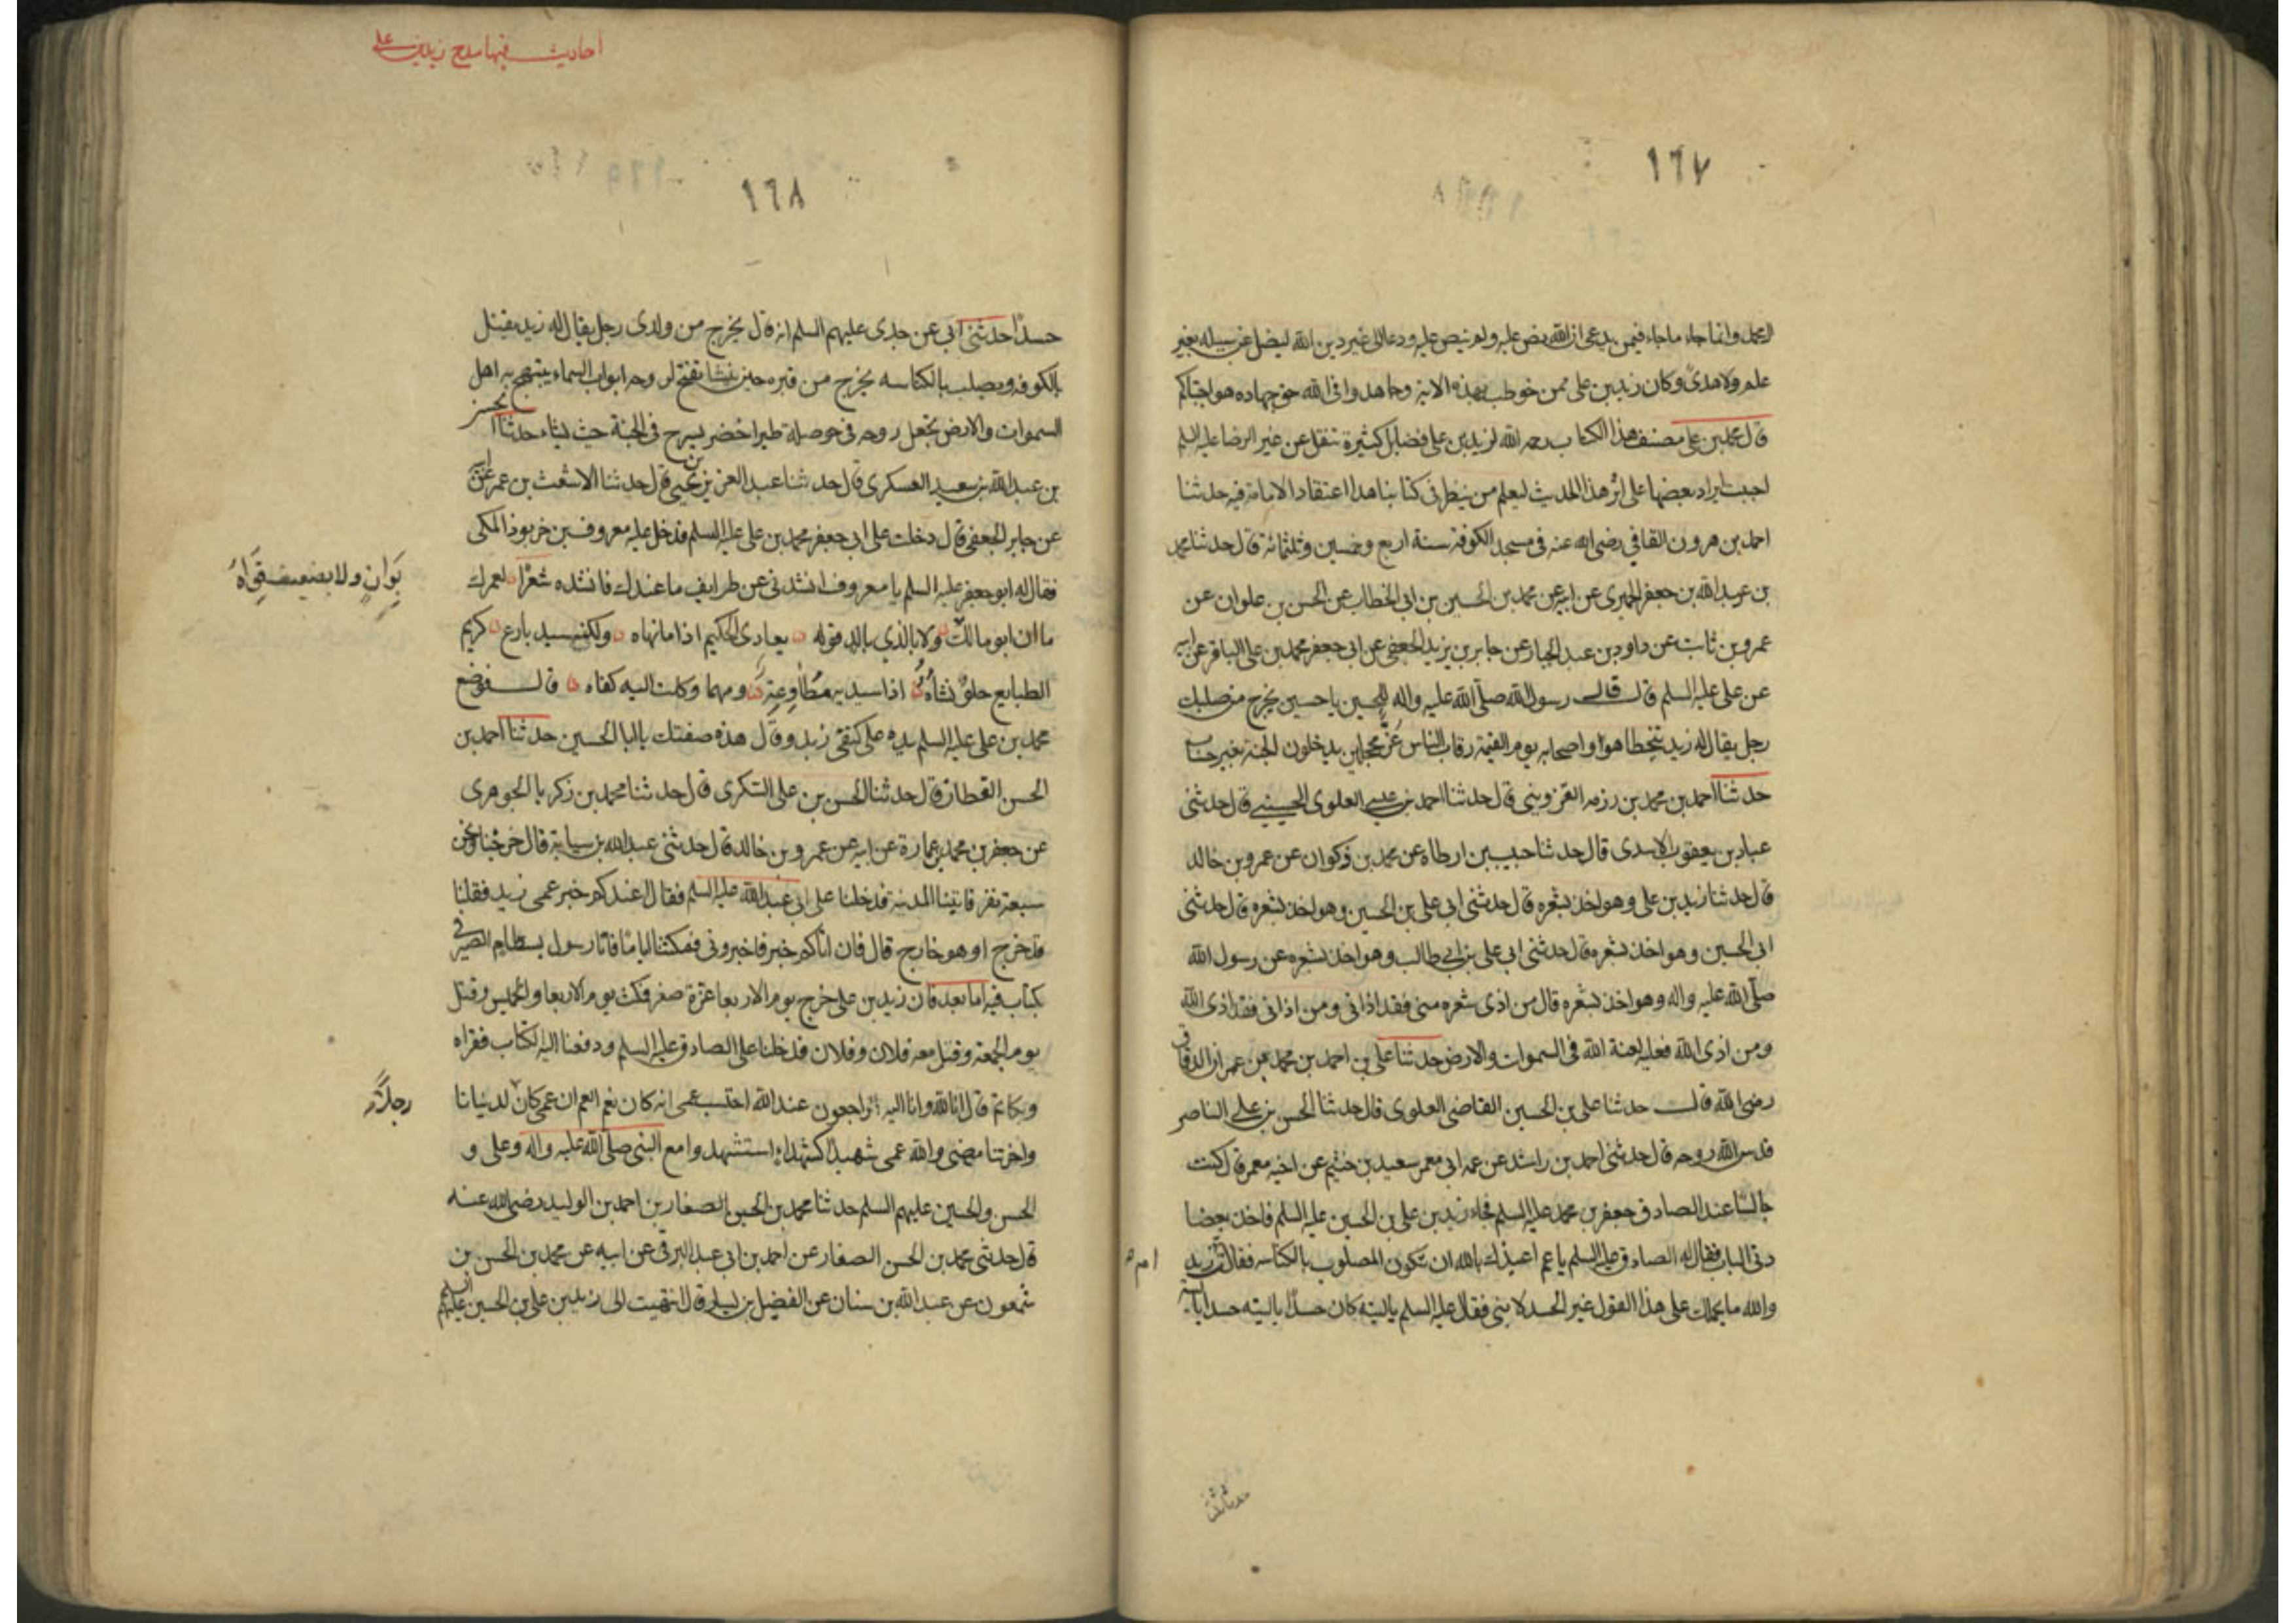 ١٦٧
العمل وانما جاء ماجاء فيمن يدعى ان الله نص عليه ولم ينص عليه ودعا الى غير دين الله ليضل عن سبيله بغير
علم ولا هدى وكان زيد بن على ممن خوطب بهذه الاية وجاهدوا فى الله حق جهاده هو اجتباكم
قال محمد بن على مصنف هذا الكتاب رحمه الله لزيد بن على فضايل كثيرة تنقل عن غير الرضا عليه السلم
احببت ايراد بعضها على اثر هذا الحديث ليعلم من ينظر فى كتابنا هذا اعتقاد الامامية فيه حدثنا
احمد بن هرون الفافى رضى الله عنه فى مسجد الكوفة سنة اربع وخمسين وثلثمائة قال حدثنا محمد
بن عبد الله بن جعفر الحميرى عن ابيه عن محمد بن الحسين بن ابى الخطاب عن الحسن بن علوان عن
عمرو بن ثابت عن داود بن عبد الجبار عن جابر بن يزيد الجعفى عن ابى جعفر محمد بن على الباقر عن ابيه
عن على عليه السلم قال قال رسول الله صلى الله عليه واله للحسين يا حسين يخرج من صلبك
رجل يقال له زيد يتخطا هو واصحابه يوم القيمة رقاب الناس غر محجلين يدخلون الجنة بغير حساب
حدثنا احمد بن محمد بن رزمه القزوينى قال حدثنا احمد بن عيسى العلوى الحسينى قال حدثنى
عباد بن يعقوب الاسدى قال حدثنا حبيب بن ارطاه عن محمد بن ذكوان عن عمرو بن خالد
قال حدثنا زيد بن على وهو اخذ بشعره قال حدثنى ابى على بن الحسين وهو اخذ بشعره قال حدثنى
ابى الحسين وهو اخذ بشعره قال حدثنى ابى على بن ابى طالب وهو اخذ بشعره عن رسول الله
صلى الله عليه واله وهو اخذ بشعره قال من اذى شعره منى فقد اذانى ومن اذانى فقد اذى الله
ومن اذى الله فعليه لعنة الله فى السموات والارض حدثنا على بن احمد بن محمد بن عمران الدقاق
رضى الله قال حدثنا على بن الحسين القاضى العلوى قال حدثنا الحسن بن على الناصر
قدس الله روحه قال حدثنى احمد بن راشد عن عمه ابى معمر سعيد بن خثيم عن اخيه معمر قال كنت
جالسا عند الصادق جعفر بن محمد عليه السلم فجاء زيد بن على بن الحسين عليه السلم فاخذ بعضا
دتى الباب فقال له الصادق عليه السلم يا عم اعيذك بالله ان تكون المصلوب بالكناسه فقالت زيد
والله ما يحملك على هذا القول غير الحسد لابنى فقال عليه السلم ياليته كان حسدا ياليته حسدا يا
احاديث فيها مدح زيد بن على
١٦٨
حسدا حدثنى ابى عن جدى عليهم السلم انه قال يخرج من ولدى رجل يقال له زيد يقتل
بالكوفه ويصلب بالكناسه يخرج من قبره حين ينشا تفتح لروحه ابواب السماء يبتهج به اهل
السموات والارض تجعل روحه فى حوصلة طير اخضر يسرح فى الجنة حيث يشاء حدثنا الحسن
بن عبد الله بن سعيد العسكرى قال حدثنا عبد العزيز بن يحيى قال حدثنا الاشعث بن عمر
عن جابر الجعفى قال دخلت على ابى جعفر محمد بن على عليه السلم فدخل عليه معروف بن خربوذ المكى
فقال له ابو جعفر عليه السلم يا معروف انشدنى عن طرايف ما عندك فانشده شعرا لعمرك
ما ان ابو مالك ولا بالذى بالد قوله يعادى الحكيم اذا ما نهاه ولكنه سيد بارع كريم
بوان ولا بضعيف قواه
الطبايع حلو نشاه اذا سيد به مطاوعة ومهما وكلت اليه كفاه قال فوضع
محمد بن على عليه السلم يده على كتفى زيد وقال هذه صفتك ياابا الحسين حدثنا احمد بن
الحسن القطان قال حدثنا الحسن بن على السكرى قال حدثنا محمد بن زكريا الجوهرى
عن جعفر بن محمد بن عمارة عن ابيه عن عمرو بن خالد قال حدثنى عبد الله بن سيابة قال خرجنا ونحن
سبعة نفر فاتينا المدينة فدخلنا على ابى عبد الله عليه السلم فقال اعندكم خبر عمى زيد فقلنا
قد خرج او هو خارج قال فان اتاكم خبر فاخبرونى فمكثنا اياما فاتا رسول بسطام الصيرفى
بكتاب فيه اما بعد فان زيد بن على خرج يوم الاربعا غرة صفر فمكث يوم الاربعا والخميس وقتل
يوم الجمعة وقتل معه فلان وفلان فدخلنا على الصادق عليه السلم ودفعنا اليه الكتاب فقراه
وبكا ثم قال انا لله وانا اليه راجعون عند الله احتسب عمى انه كان نعم العم ان عمى كان لدنيانا
رجلا
واخرتنا مضى والله عمى شهيدا كشهداء استشهدوا مع النبى صلى الله عليه واله وعلى و
الحسن والحسين عليهم السلم حدثنا محمد بن الحسن الصفار بن احمد بن الوليد رضى الله عنه
قال حدثنى محمد بن الحسن الصفار عن احمد بن ابى عبد البرقى عن ابيه عن محمد بن الحسن بن
شمعون عن عبد الله بن سنان عن الفضيل بن يسار قال انتهيت الى زيد بن على بن الحسين عليهم السلم